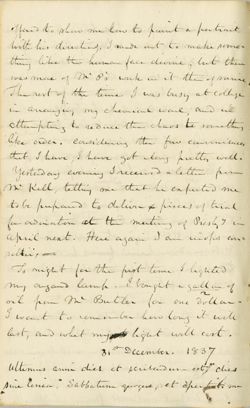 offered to show me how to paint a portrait
with his direction, I made out to make some-
thing like the human face divine; but there
was more of Mr P's work in it than of mine.
The rest of the time I was busy at college
in arranging my chemical room, and in
attempting to reduce the chaos to something
like order. Considering the few conveniences
that I have I have got along pretty well.
Yesterday evening I received a letter from
Mr Kell, telling me that he expected me
to be prepared to deliver pieces of trial
for ordination at the meeting of Presby in
April next. Here again I am
To night for the first time I lighted
my argand lamp. I bought a gallon of
oil from Mr Butler for one dollar.
I want to remember how long it will
last, and what my light will cost.
31st December. 1837
Ultimus anni dies at
sine Sabbatum quoque, et